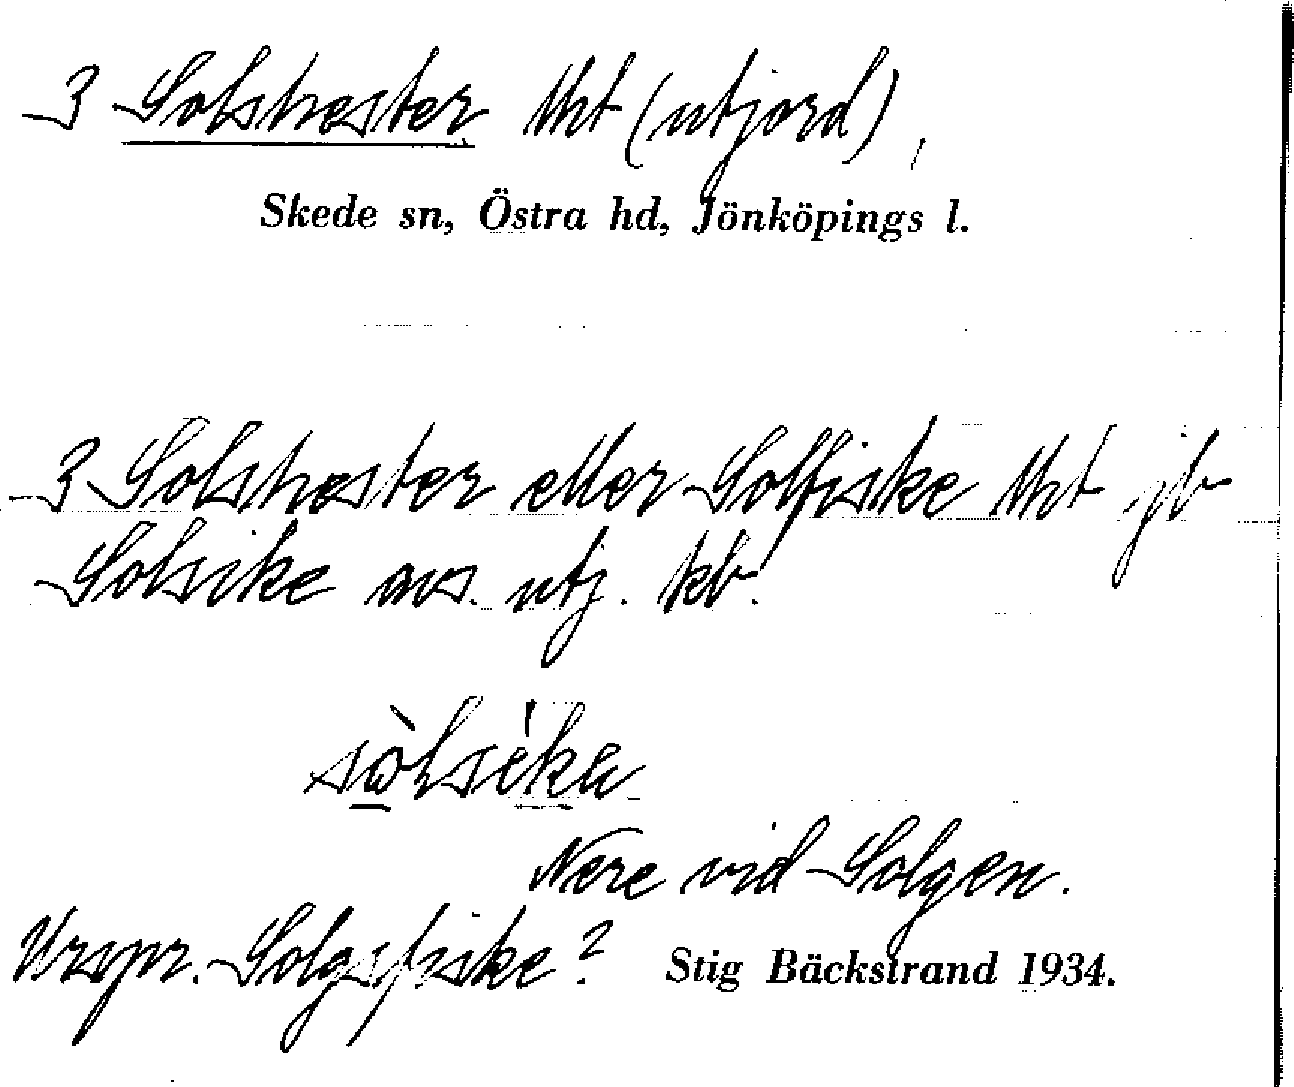 3 Solshester Uht (utjord),
Skede sn, Östra hd, Jönköpings l.
3 Solshester eller Solfiske Uht jb
Solsike avs. utj. kb.
Nere vid Solgen.
Urspr. Solgsfiske? Stig Bäckstrand 1934.